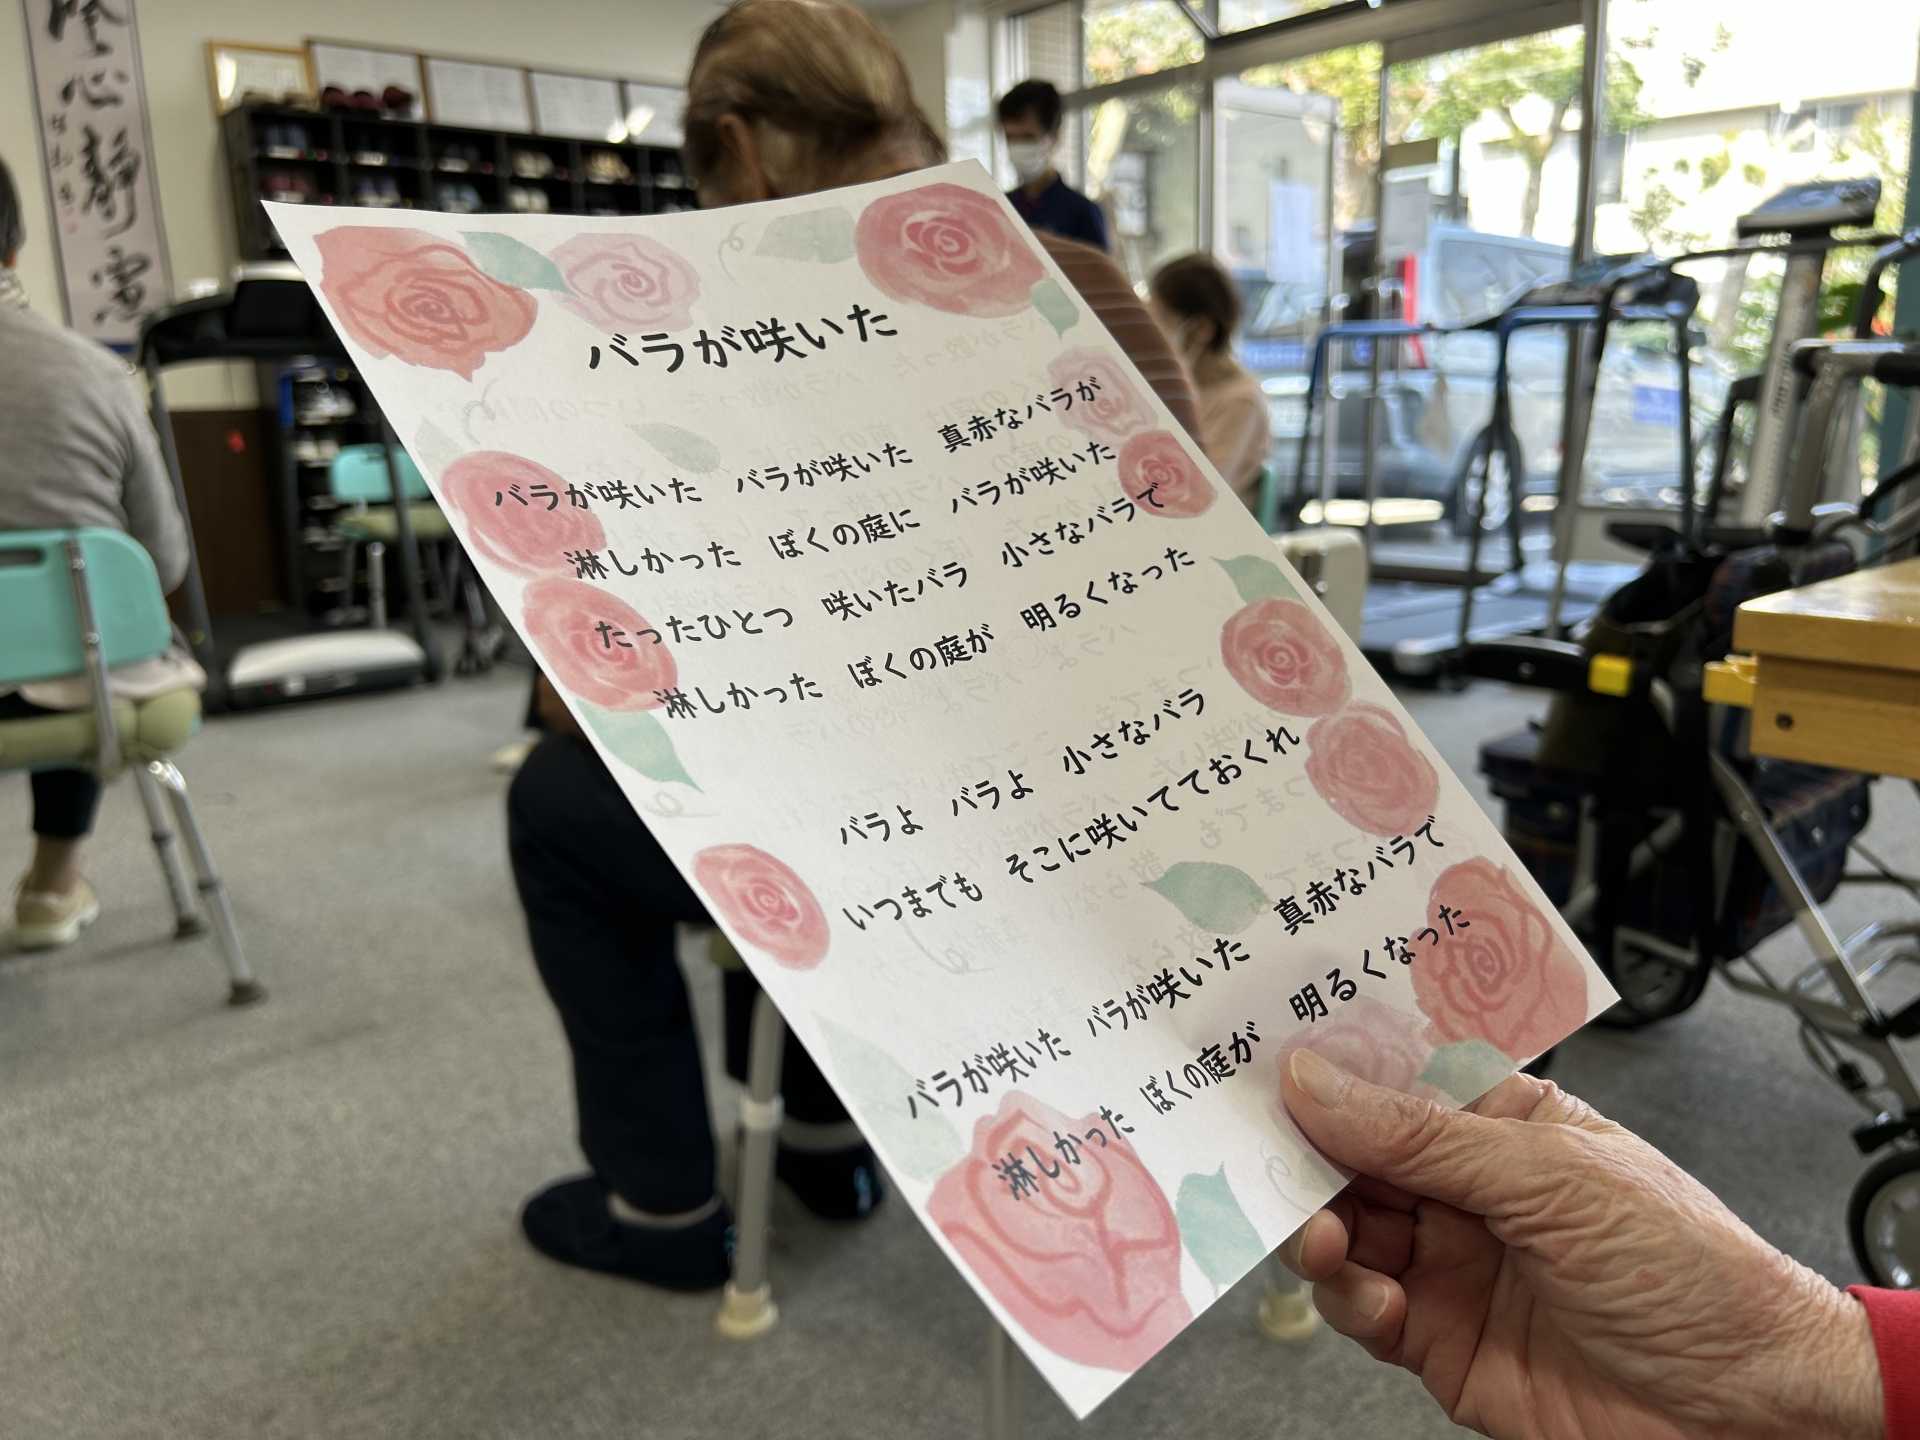 バラが咲いた
バラが咲いた　バラが咲いた　真赤なバラが
淋しかった　ぼくの庭に　バラが咲いた
たったひとつ　咲いたバラ　小さなバラで
淋しかった　ぼくの庭が　明るくなった
バラよ　バラよ　小さなバラ
いつまでも　そこに咲いてておくれ
バラが咲いた　バラが咲いた　真赤なバラで
淋しかった　ぼくの庭が　明るくなった
心静